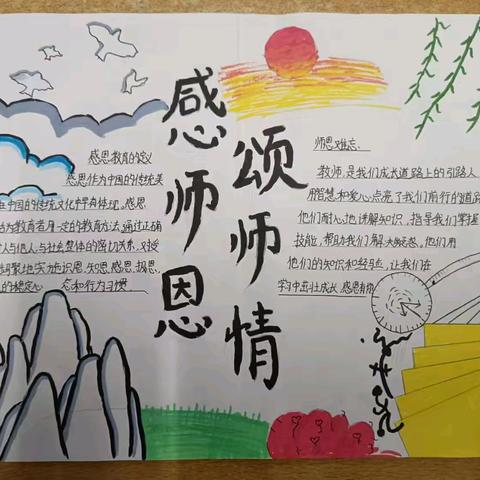 感师恩
颂师情
感恩教育的定义
感恩作为中国的传统美
中国的传统文化中早有体现。感恩
教育者用一定的教育方法,通过正确
人与他人、与社会整体的密切关系,对授
地实施识恩、知恩、感恩、报恩、
念和行为习惯
师恩难忘
教师,是我们成长道路上的引路人
用智慧和爱心点亮了我们前行的道路
他们耐心地讲解知识,指导我们掌握
技能,帮助我们解决疑惑,他们用
他们的知识和经验,让我们在
学习中茁壮成长,感恩有你